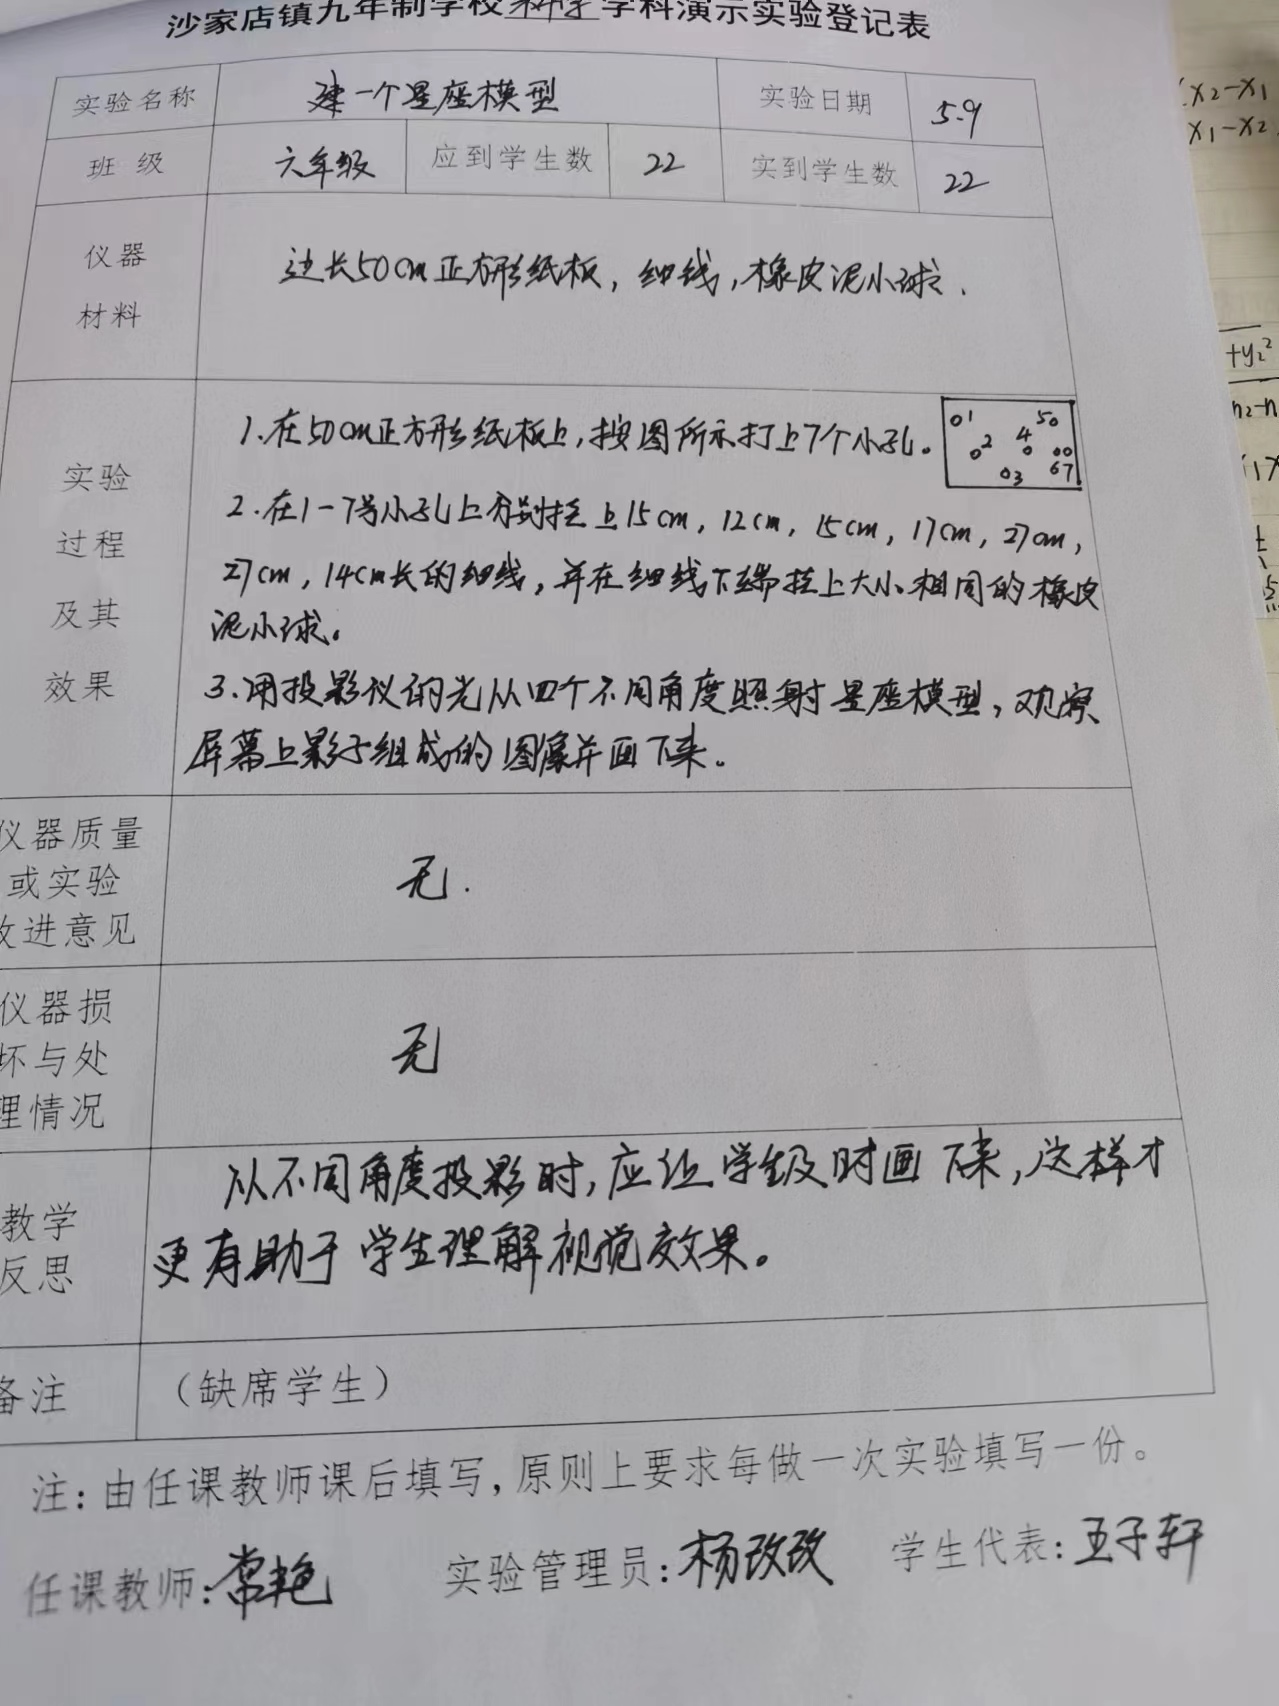 沙家店镇九年制学校科学学科演示实验登记表
实验名称 建一个星座模型 实验日期 5.9
班 级 六年级 应到学生数 22 实到学生数 22
仪器
材料
边长50cm正方形纸板，细线，橡皮泥小球.
实验
过程
及其
效果
1.在50cm正方形纸板上，按图所示打上7个小孔。
1 2 3 4 5 6 7
2.在1-7号小孔上分别挂上15cm，12cm，15cm，17cm，27cm，
27cm，14cm长的细线，并在细线下端挂上大小相同的橡皮
泥小球。
3.用投影仪的光从四个不同角度照射星座模型，观察
屏幕上影子组成的图像并画下来。
仪器质量
或实验
改进意见
无.
仪器损
坏与处
理情况
无
教学
反思
从不同角度投影时，应让学生及时画下来，这样才
更有助于学生理解视觉效果。
备注 （缺席学生）
注：由任课教师课后填写，原则上要求每做一次实验填写一份。
任课教师：常艳 实验管理员：杨改改 学生代表：王子轩
x₂-x₁
x₁-x₂
+y₂²